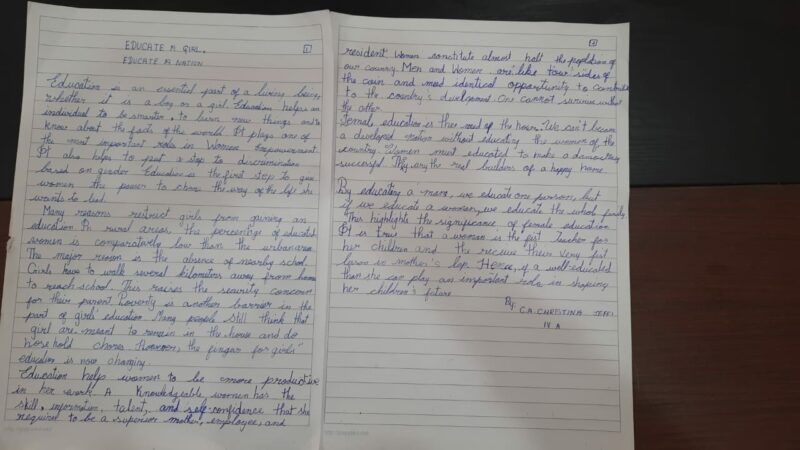 1
EDUCATE A GIRL.
EDUCATE A NATION
Education is an essential part of a living being,
whether it is a boy or a girl. Education helps an
individual to be smarter, to learn new things and to
know about the facts of the world. It plays one of
the most important roles in Women Empowerment.
It also helps to put a stop to discrimination
based on gender. Education is the first step to give
women the power to chose the way of the life she
wants to lead.
Many reasons restrict girls from gaining an
education. In rural areas, the percentage of educated
women is comparatively low than the urban area.
The major reason is the absence of nearby school.
Girls have to walk several kilometers away from home
to reach school. This raises the security concern
for their parent. Poverty is another barrier in the
part of girls' education. Many people still think that
girl are meant to remain in the house and do
household chores. However, the for girls'
education is now changing.
Education help women to be more productive
in her work. A Knowledgeable women has the
skill, information, talent, and self-confidence that she
required to be a superior mother, employee, and
2
resident. Women constitute almost half the population of
our country. Men and Women are like two sides of
the coin and most identical opportunity to contribute
to the country's development. One cannot survive without
the other.
education is the need of the hour. We can't become
a developed nation without educating the women of the
country. Women must educated to make a democracy
successful. They are the real builders of a happy home.
By educating a man, we educate one person, but
if we educate a women, we educate the whole family.
This highlights the significance of female education
It is true that a woman is the fist teacher for
her children and the receive their very fist
lesson in mother's lap. Hence, if a well-educated
than she can play an important role in shaping
her children's future
By
C.A. CHRISTINA
IX A